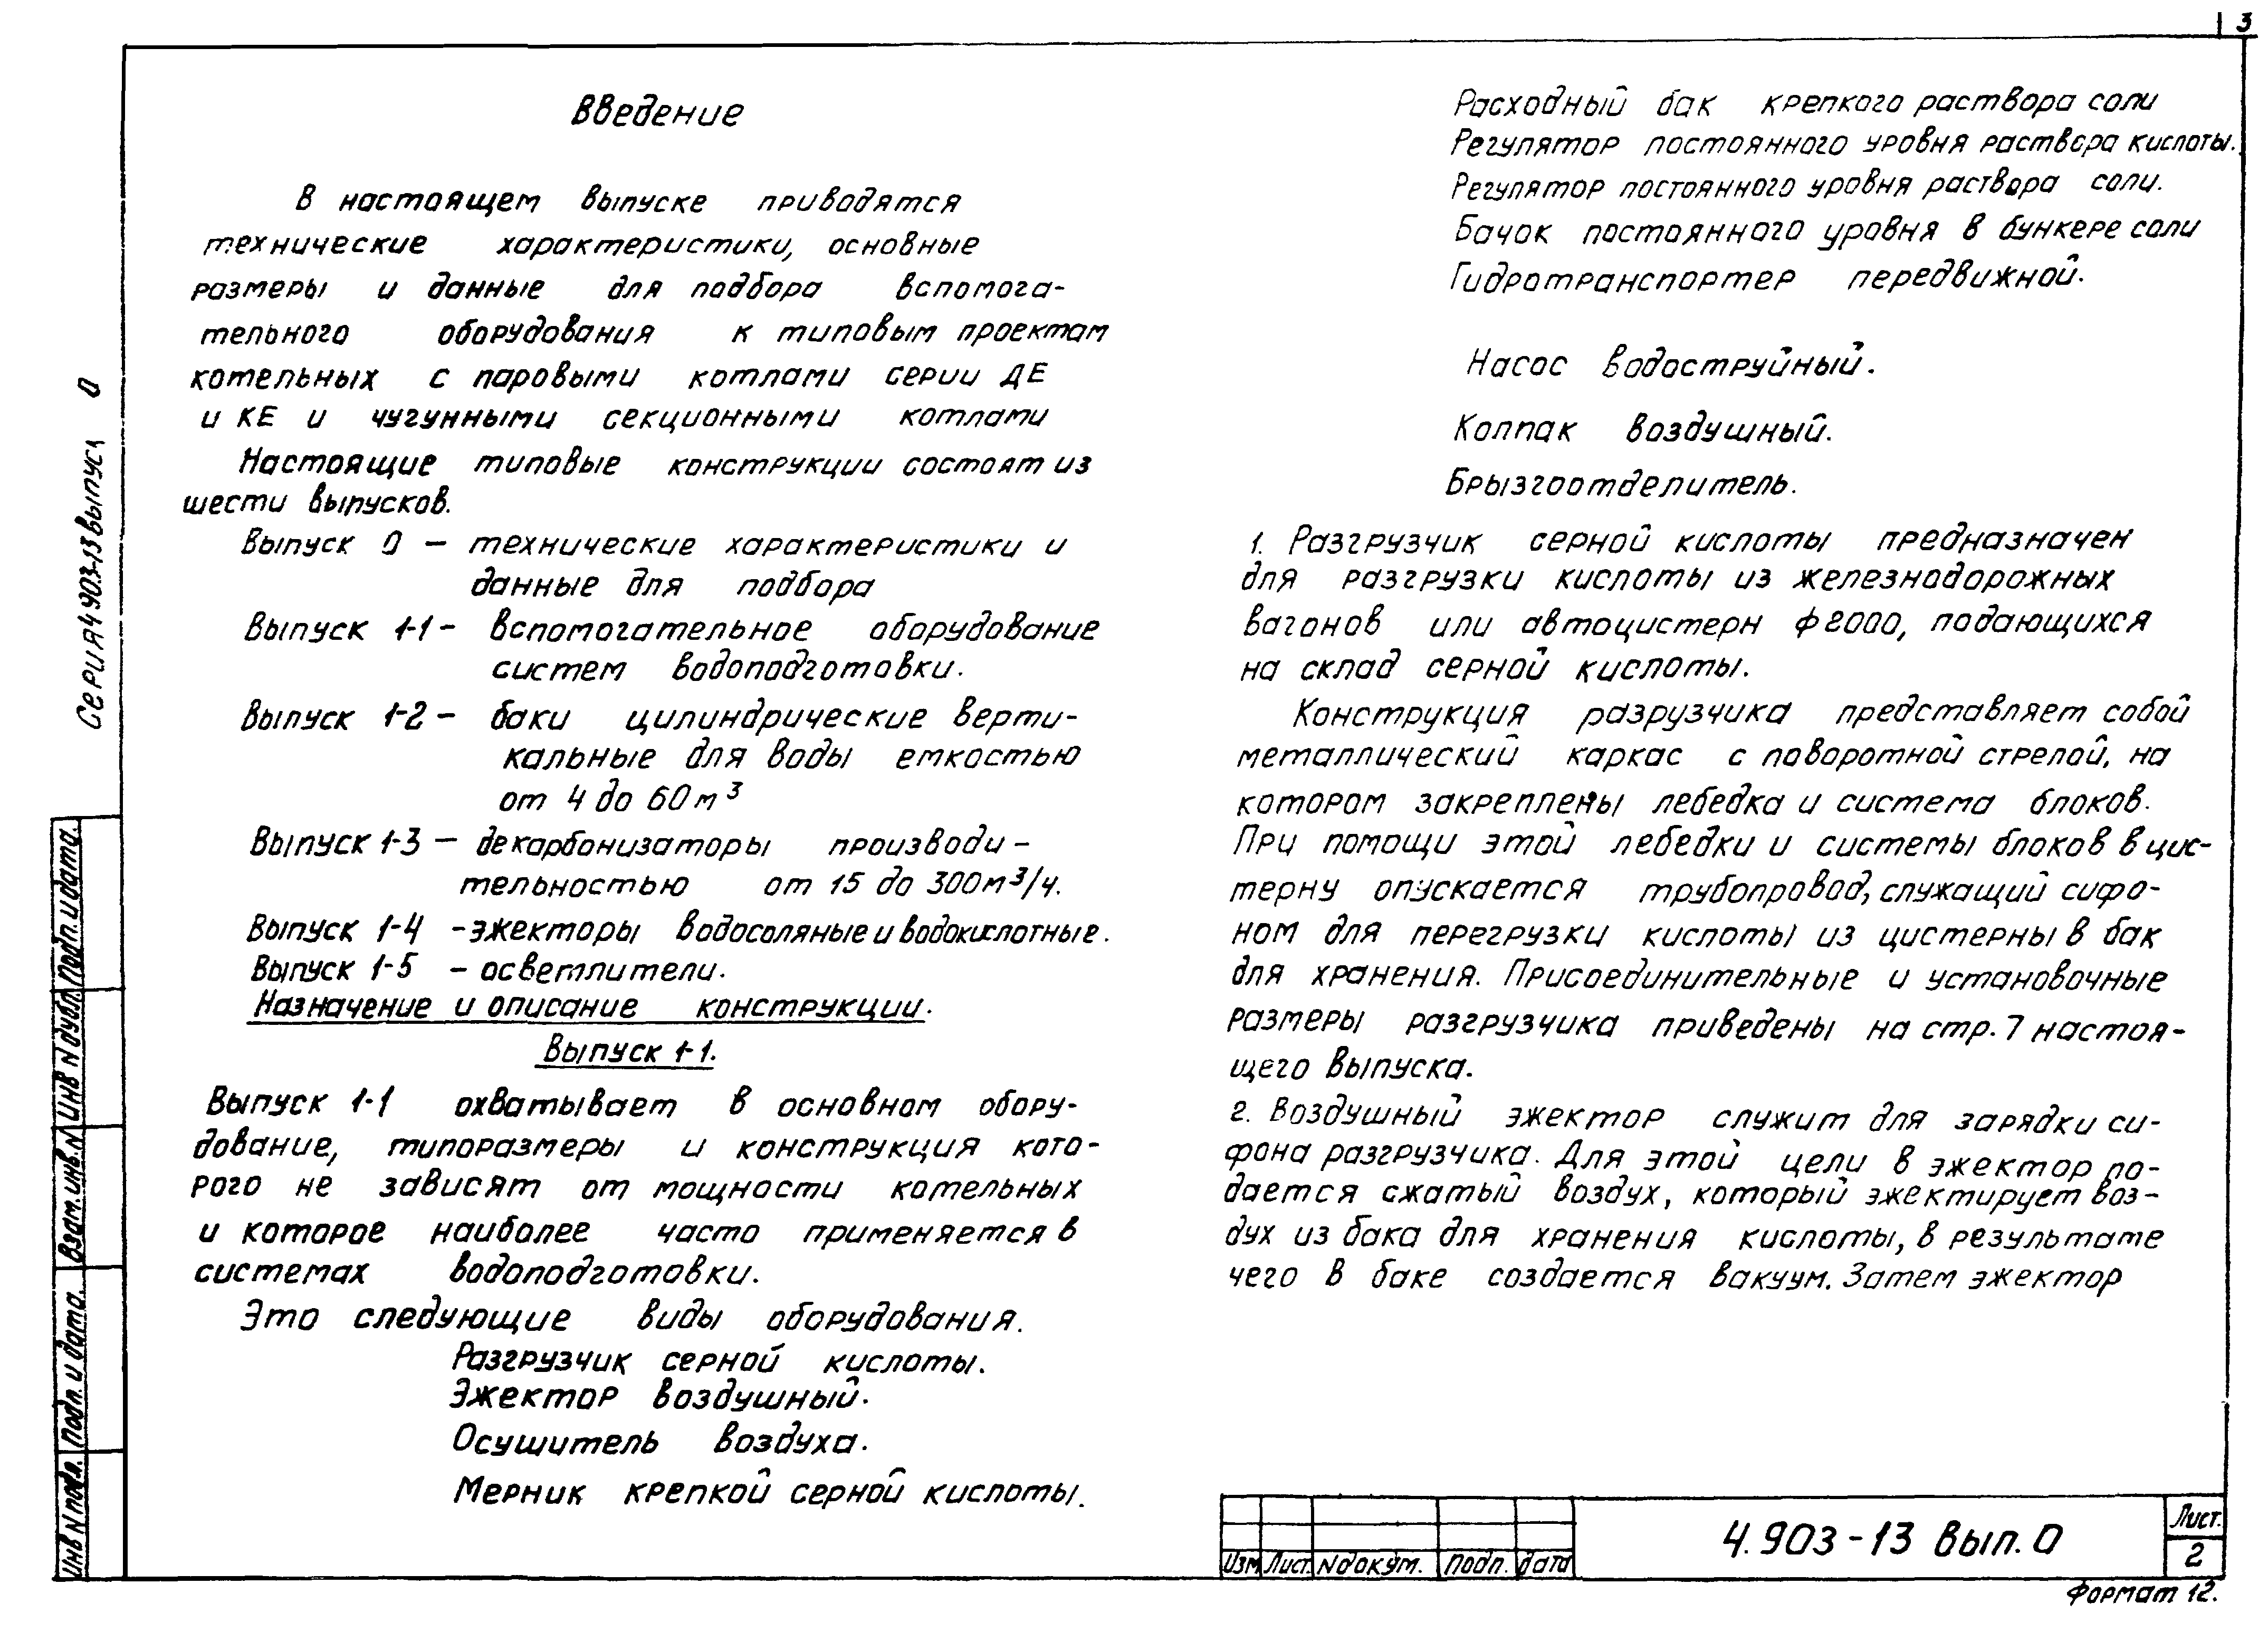 3
Введение
В настоящем выпуске приводятся
технические характеристики, основные
размеры и данные для подбора вспомога-
тельного оборудования к типовым проектам
котельных с паровыми котлами серии ДЕ
и КЕ и чугунными секционными котлами
Настоящие типовые конструкции состоят из
шести выпусков.
Выпуск 0 – технические характеристики и
данные для подбора
Выпуск 1-1 – вспомогательное оборудование
систем водоподготовки.
Выпуск 1-2 – баки цилиндрические верти-
кальные для воды емкостью
от 4 до 60 м³
Выпуск 1-3 – декарбонизаторы производи-
тельностью от 15 до 300м³/ч.
Выпуск 1-4 - эжекторы водосоляные и водокислотные.
Выпуск 1-5 - осветлители.
Назначение и описание конструкции.
Выпуск 1-1.
Выпуск 1-1 охватывает в основном обору-
дование, типоразмеры и конструкция кото-
рого не зависят от мощности котельных
и которое наиболее часто применяется в
системах водоподготовки.
Это следующие виды оборудования.
Разгрузчик серной кислоты.
Эжектор воздушный.
Осушитель воздуха.
Мерник крепкой серной кислоты.
Расходный бак крепкого раствора соли
Регулятор постоянного уровня раствора кислоты.
Регулятор постоянного уровня раствора соли.
Бачок постоянного уровня в бункере соли
Гидротранспортер передвижной.
Насос водоструйный.
Колпак воздушный.
Брызгоотделитель.
1. Разгрузчик серной кислоты предназначен
для разгрузки кислоты из железнодорожных
вагонов или автоцистерн ф2000, подающихся
на склад серной кислоты.
Конструкция разрузчика представляет собой
металлический каркас с поворотной стрелой, на
котором закреплены лебедка и система блоков.
При помощи этой лебедки и системы блоков в цис-
терну опускается трубопровод, служащий сифо-
ном для перегрузки кислоты из цистерны в бак
для хранения. Присоединительные и установочные
размеры разгрузчика приведены на стр. 7 настоя-
щего выпуска.
2. Воздушный эжектор служит для зарядки си-
фона разгрузчика. Для этой цели в эжектор по-
дается сжатый воздух, который эжектирует воз-
дух из бака для хранения кислоты, в результате
чего в баке создается вакуум. Затем эжектор
Серия 4 903-13 выпуск 0
Инв N подл. Подп. и дата. Взам. инв. N Инв N дубл Подп. и дата.
Изм Лист N докум. Подп. дата
4.903-13 вып. 0
Лист.
2
Формат 12.